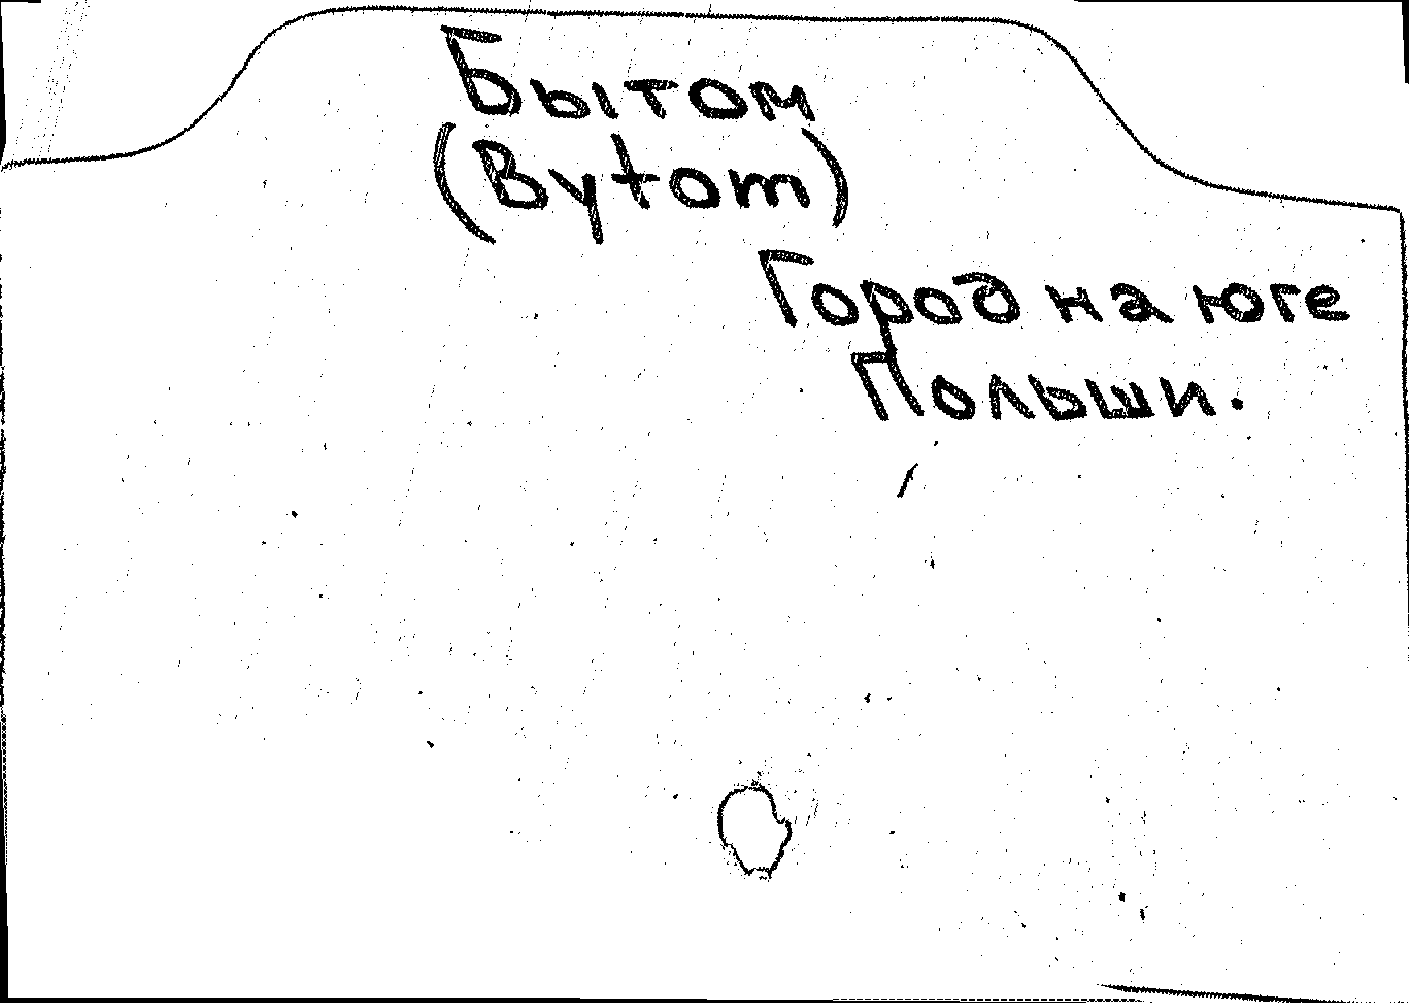 Бытом
(Bytom)
Город на юге
Польши.